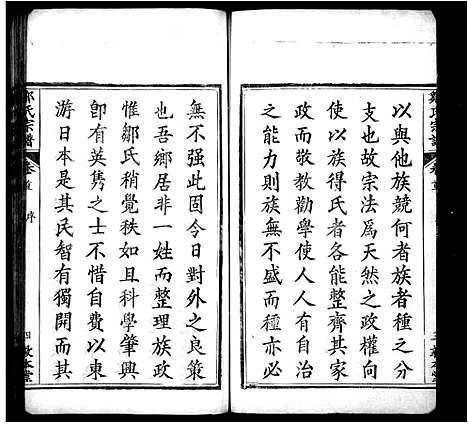 以與他族競何者族者種之分
支也故宗法爲天然之政權向
使以族得氏者各能整齊其家
政而敬教勸學使人人有自治
之能力則族無不盛而種亦必
鄒氏宗譜
卷首
序
四
無不强此固今日對外之良策
也吾鄉居非一姓而整理族政
惟鄒氏稍覺秩如且科學肇興
卽有英雋之士不惜自費以東
游日本是其民智有獨開而其